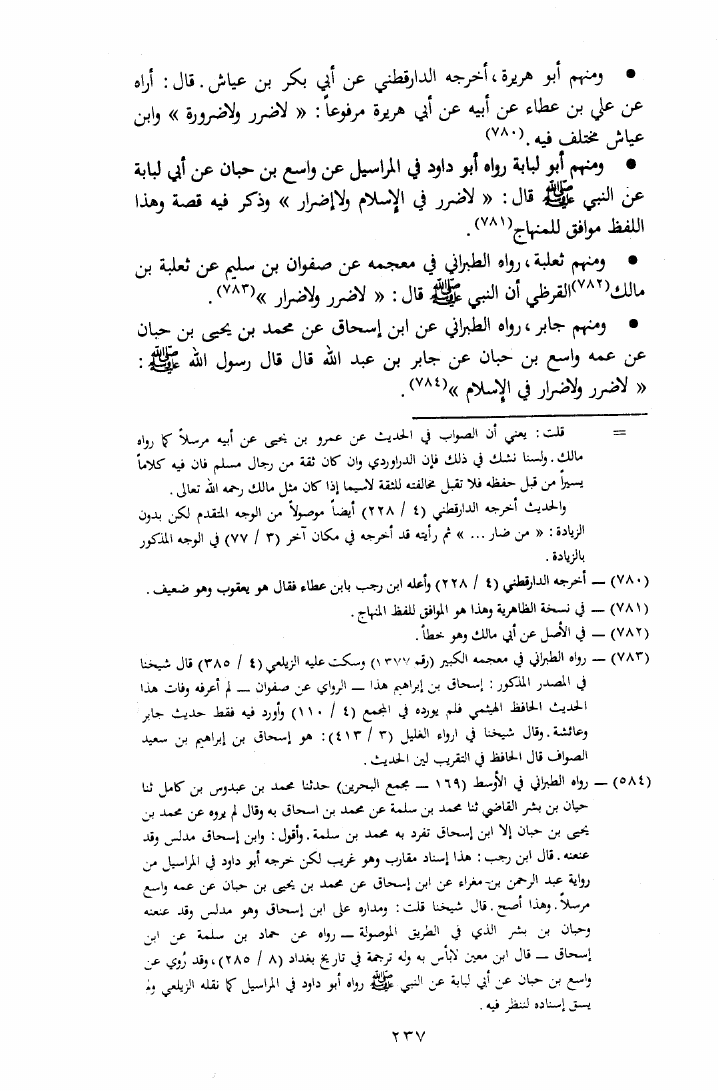 ● ومنهم أبو هريرة، أخرجه الدارقطني عن أبي بكر بن عياش. قال: أراه
عن علي بن عطاء عن أبيه عن أبي هريرة مرفوعاً: « لاضرر ولاضرورة » وابن
عياش مختلف فيه. (٧٨٠)
● ومنهم أبو لبابة رواه أبو داود في المراسيل عن واسع بن حبان عن أبي لبابة
عن النبي ﷺ قال: « لاضرر في الإسلام ولاإضرار » وذكر فيه قصة وهذا
اللفظ موافق للمنهاج(٧٨١).
● ومنهم ثعلبة، رواه الطبراني في معجمه عن صفوان بن سليم عن ثعلبة بن
مالك(٧٨٢)القرظي أن النبي ﷺ قال: « لاضرر ولاضرار »(٧٨٣).
● ومنهم جابر، رواه الطبراني عن ابن إسحاق عن محمد بن يحيى بن حبان
عن عمه واسع بن حبان عن جابر بن عبد الله قال قال رسول الله ﷺ :
« لاضرر ولاضرار في الإسلام »(٧٨٤).
= قلت: يعني أن الصواب في الحديث عن عمرو بن يحيى عن أبيه مرسلاً كما رواه
مالك. ولسنا نشك في ذلك فإن الدراوردي وان كان ثقة من رجال مسلم فان فيه كلاماً
يسيراً من قبل حفظه فلا تقبل مخالفته للثقة لاسيما إذا كان مثل مالك رحمه الله تعالى.
والحديث أخرجه الدارقطني (٤ / ٢٢٨) أيضاً موصولاً من الوجه المتقدم لكن بدون
الزيادة: « من ضار ... » ثم رأيته قد أخرجه في مكان آخر (٣ / ٧٧) في الوجه المذكور
بالزيادة.
(٧٨٠) — أخرجه الدارقطني (٤ / ٢٢٨) وأعله ابن رجب بابن عطاء فقال هو يعقوب وهو ضعيف.
(٧٨١) — في نسخة الظاهرية وهذا هو الموافق للفظ المنهاج.
(٧٨٢) — في الأصل عن أبي مالك وهو خطأ.
(٧٨٣) — رواه الطبراني في معجمه الكبير (رقم ١٣٧٧) وسكت عليه الزيلعي (٤ / ٣٨٥) قال شيخنا
في المصدر المذكور: إسحاق بن إبراهيم هذا — الرواي عن صفوان — لم أعرفه وفات هذا
الحديث الحافظ الهيثمي فلم يورده في المجمع (٤ / ١١٠) وأورد فيه فقط حديث جابر
وعائشة. وقال شيخنا في ارواء الغليل (٣ / ٤١٣): هو إسحاق بن إبراهيم بن سعيد
الصواف قال الحافظ في التقريب لين الحديث.
(٥٨٤) — رواه الطبراني في الأوسط (١٦٩ — مجمع البحرين) حدثنا محمد بن عبدوس بن كامل ثنا
حيان بن بشر القاضي ثنا محمد بن سلمة عن محمد بن اسحاق به وقال لم يروه عن محمد بن
يحيى بن حبان إلا ابن إسحاق تفرد به محمد بن سلمة. وأقول: وابن إسحاق مدلس وقد
عنعنه. قال ابن رجب: هذا إسناد مقارب وهو غريب لكن خرجه أبو داود في المراسيل من
رواية عبد الرحمن بن مغراء عن ابن إسحاق عن محمد بن يحيى بن حبان عن عمه واسع
مرسلاً. وهذا أصح. قال شيخنا قلت: ومداره على ابن إسحاق وهو مدلس وقد عنعنه
وحبان بن بشر الذي في الطريق الموصولة — رواه عن حماد بن سلمة عن ابن
إسحاق — قال ابن معين لابأس به وله ترجمة في تاريخ بغداد (٨ / ٢٨٥)، وقد رُوي عن
واسع بن حبان عن أبي لبابة عن النبي ﷺ رواه أبو داود في المراسيل كما نقله الزيلعي ولم
يسق إسناده لننظر فيه.
٢٣٧